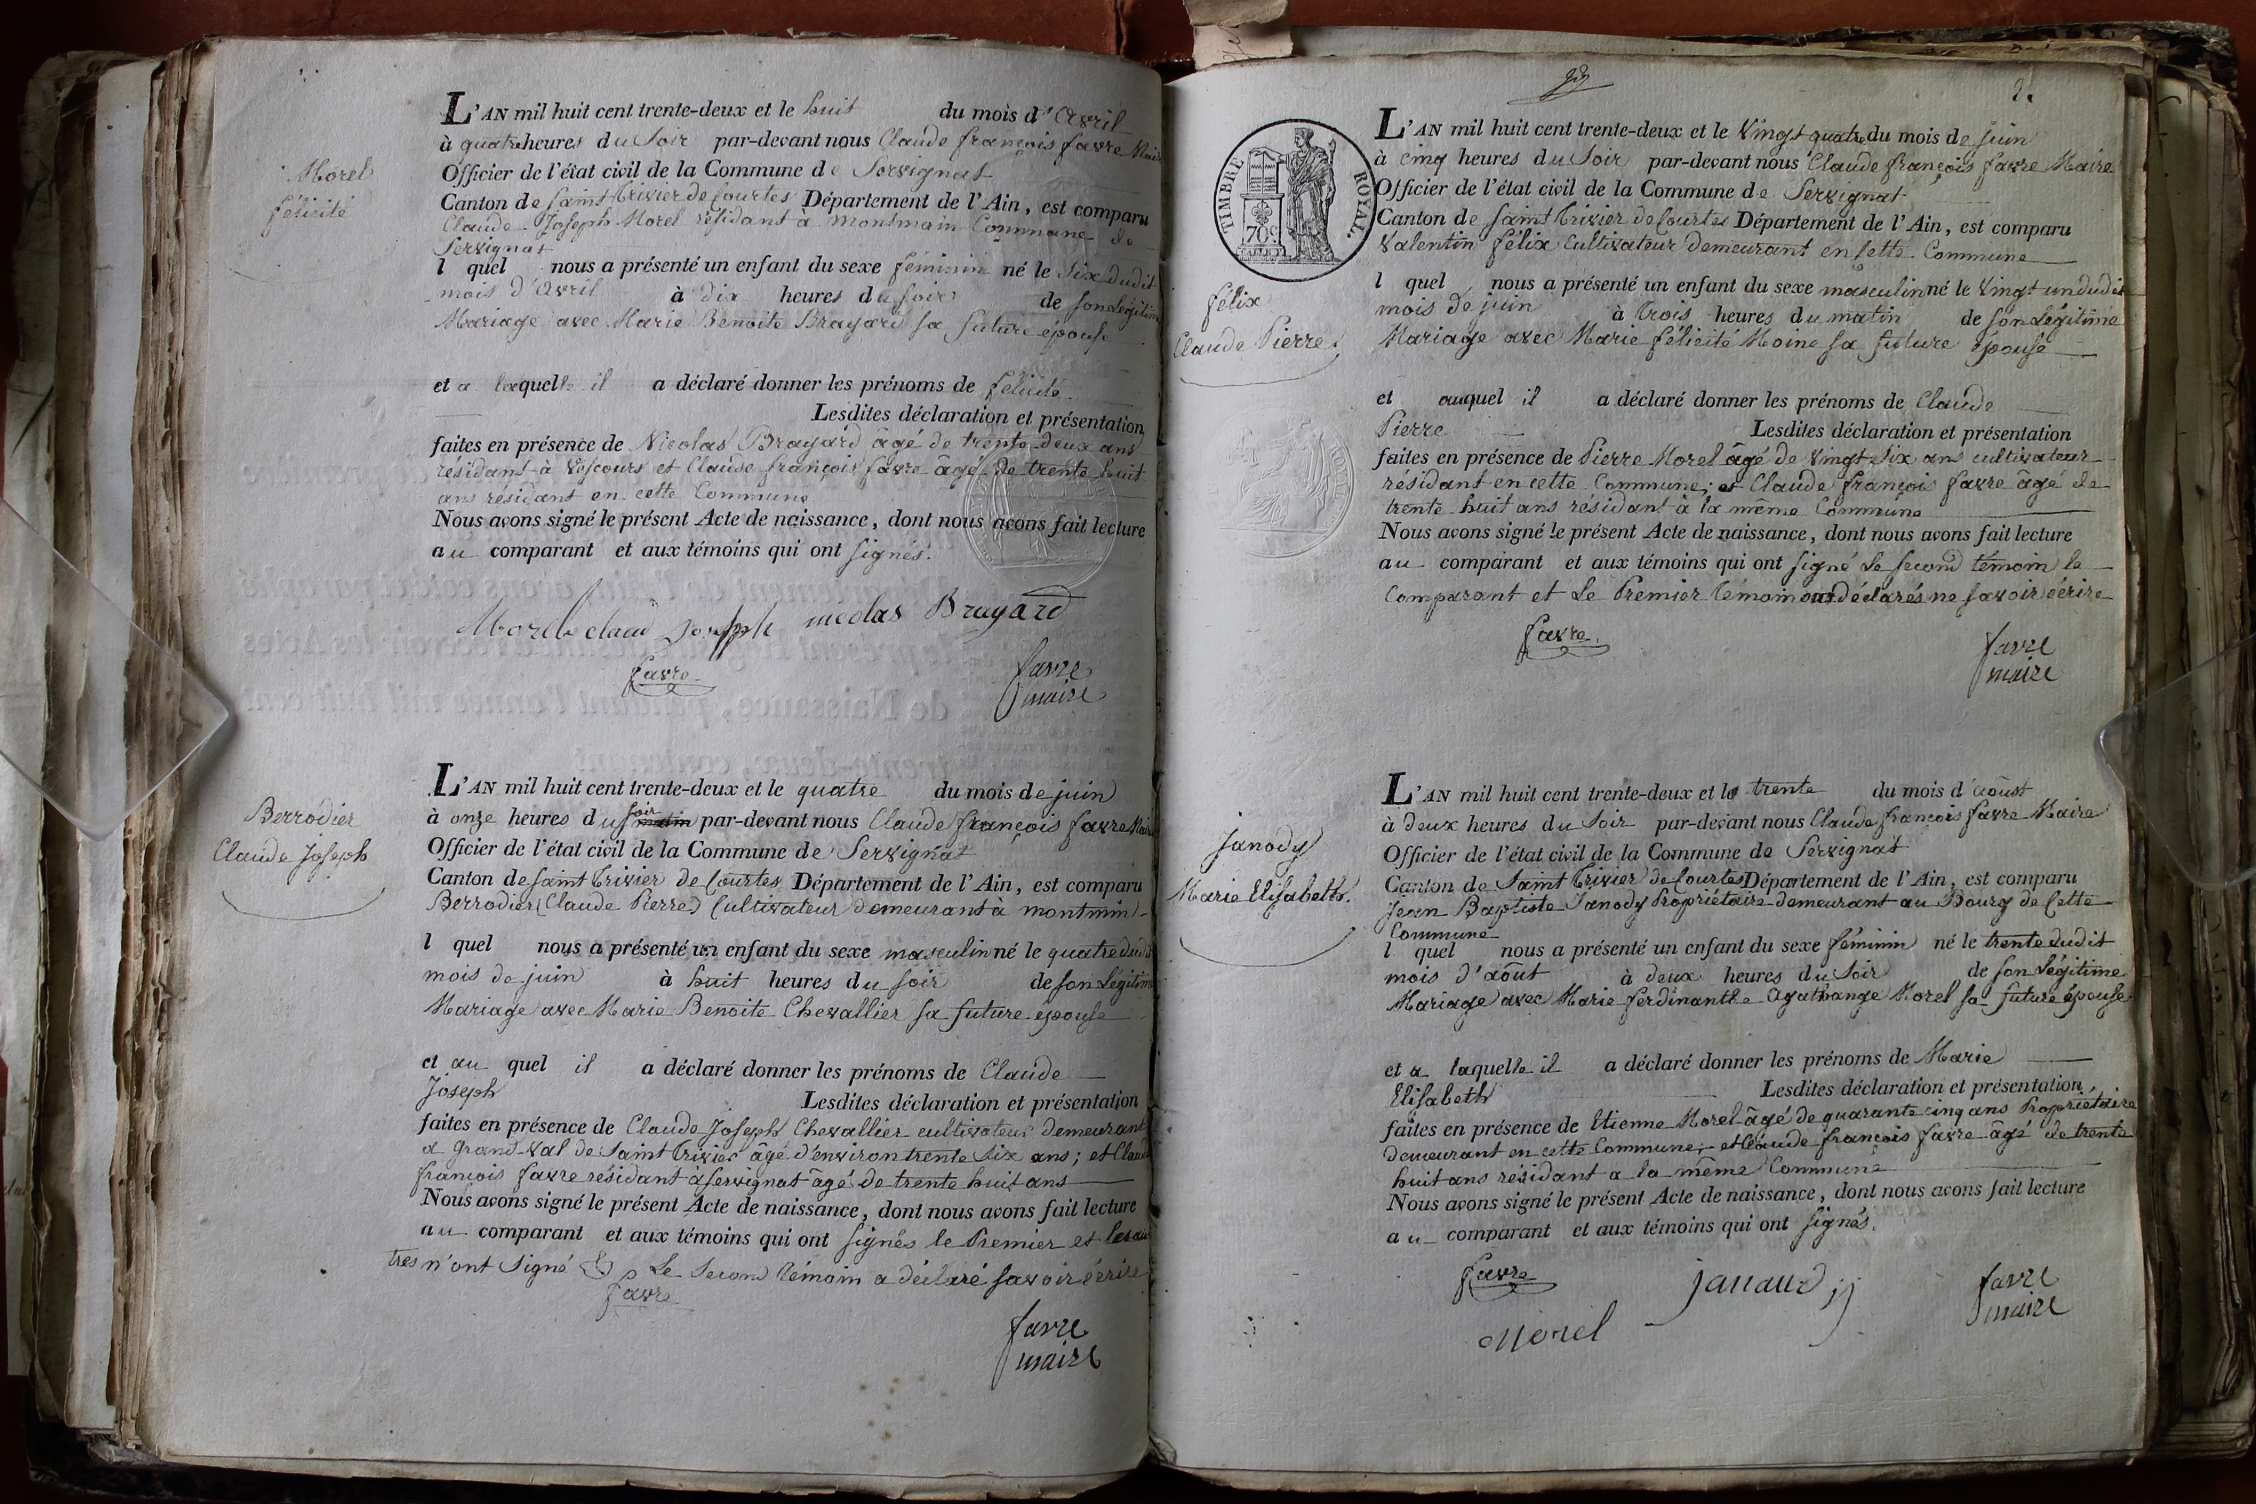 Morel
félicité
L'AN mil huit cent trente-deux et le huit du mois d'Avril
à quatre heures du Soir par-devant nous Claude françois favre Maire
Officier de l'état civil de la Commune de Servignat
Canton de Saint Trivier de Courtes Département de l'Ain, est comparu
Claude Joseph Morel résidant à Montmain Commune de
Servignat
l quel nous a présenté un enfant du sexe féminin né le Six dudit
mois d'Avril à dix heures du soir de son Légitime
Mariage avec Marie Benoite Brayard sa future épouse
et a laquelle il a déclaré donner les prénoms de félicité
Lesdites déclaration et présentation
faites en présence de Nicolas Brayard âgé de trente deux ans
résidant à Vescours et Claude françois favre âgé de trente huit
ans résidant en cette Commune
Nous avons signé le présent Acte de naissance, dont nous avons fait lecture
au comparant et aux témoins qui ont signés.
Morel claud Joseph nicolas Brayard
favre
favre
maire
Berrodier
Claude Joseph
L'AN mil huit cent trente-deux et le quatre du mois de juin
à onze heures du soir matin par-devant nous Claude françois favre Maire
Officier de l'état civil de la Commune de Servignat
Canton de Saint Trivier de Courtes Département de l'Ain, est comparu
Berrodier (Claude Pierre) Cultivateur demeurant à montmin
l quel nous a présenté un enfant du sexe masculin né le quatre dudit
mois de juin à huit heures du soir de son Légitime
Mariage avec Marie Benoite Chevallier sa future épouse
et au quel il a déclaré donner les prénoms de Claude
Joseph
Lesdites déclaration et présentation
faites en présence de Claude Joseph Chevallier cultivateur demeurant
a Grand-Val de Saint Trivier âgé d'environ trente Six ans; et Claude
françois favre résidant à Servignat âgé de trente huit ans
Nous avons signé le présent Acte de naissance, dont nous avons fait lecture
au comparant et aux témoins qui ont signés le Premier et les au
tres n'ont Signé Le Second témoin a déclaré savoir écrire
favre
favre
maire
2.
TIMBRE ROYAL.
70c
félix
Claude Pierre.
L'AN mil huit cent trente-deux et le Vingt quatre du mois de juin
à cinq heures du Soir par-devant nous Claude françois favre Maire
Officier de l'état civil de la Commune de Servignat
Canton de Saint Trivier de Courtes Département de l'Ain, est comparu
Valentin félix Cultivateur demeurant en cette Commune
l quel nous a présenté un enfant du sexe masculin né le Vingt un dudit
mois de juin à trois heures du matin de son Légitime
Mariage avec Marie félicité Moine sa future épouse
et auquel il a déclaré donner les prénoms de Claude
Pierre Lesdites déclaration et présentation
faites en présence de Pierre Morel âgé de Vingt Six ans cultivateur
résidant en cette Commune; et Claude françois favre âgé de
trente huit ans résidant à la même Commune
Nous avons signé le présent Acte de naissance, dont nous avons fait lecture
au comparant et aux témoins qui ont signé Le Second témoin le
Comparant et Le Premier témoin ont déclarés ne savoir écrire
favre.
favre
maire
Janody
Marie Elisabeth.
L'AN mil huit cent trente-deux et le trente du mois d'août
à deux heures du Soir par-devant nous Claude françois favre Maire
Officier de l'état civil de la Commune de Servignat
Canton de Saint Trivier de Courtes Département de l'Ain, est comparu
Jean Baptiste Janody Propriétaire demeurant au Bourg de Cette
Commune
l quel nous a présenté un enfant du sexe féminin né le trente dudit
mois d'août à deux heures du Soir de son Légitime
Mariage avec Marie ferdinanthe Agathange Morel sa future épouse
et a laquelle il a déclaré donner les prénoms de Marie
Elisabeth Lesdites déclaration et présentation
faites en présence de Etienne Morel âgé de quarante cinq ans Propriétaire
demeurant en cette Commune; et Claude françois favre âgé de trente
huit ans résidant a la même Commune
Nous avons signé le présent Acte de naissance, dont nous avons fait lecture
au comparant et aux témoins qui ont signés.
favre janaud jj favre
maire
Morel